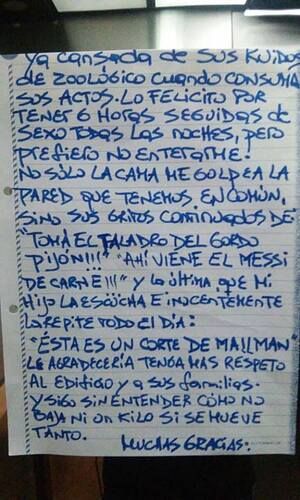 ya cansada de sus ruidos
de zoológico cuando consuma
sus actos. Lo felicito por
tener 6 horas seguidas de
sexo todas las noches, pero
prefiero no enterarme!
No sólo la cama me golpea la
pared que tenemos en común,
sino sus gritos continuados de:
"Tomá el taladro del gordo
pijón!!!" "Ahí viene el Messi
de carne!!!" y la última, que mi
hijo la escucha e inocentemente
la repite todo el día:
"Ésta es un corte de mailman"
Le agradecería tenga más respeto
al edificio y a sus familias.
y sigo sin entender cómo no
baja ni un kilo si se mueve
tanto.
Muchas gracias.